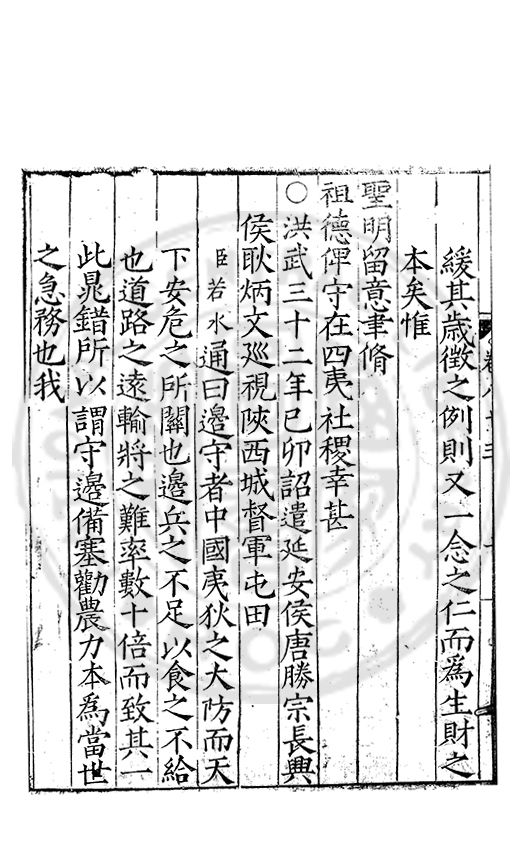 緩其歲徴之例則又一念之仁而爲生財之
本矣惟
聖明留意聿脩
祖德俾守在四夷社稷幸甚
○洪武三十二年己卯詔遣延安侯唐勝宗長興
侯耿炳文廵視陝西城督軍屯田
臣若水通曰邊守者中國夷狄之大防而天
下安危之所關也邊兵之不足以食之不給
也道路之遠輸將之難率數十倍而致其一
此鼂錯所以謂守邊備塞勸農力本爲當世
之急務也我